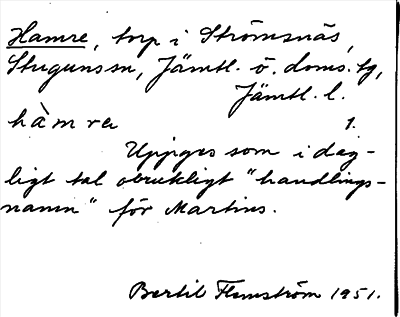 Hamre, torp i Strömsnäs,
Stugunssn, Jämtl. ö. doms. tg,
Jämtl. l.
hàmra 1.
Uppges som i dag-
ligt tal obrukligt "handlings-
namn" för Martins.
Bertil Flemström 1951.